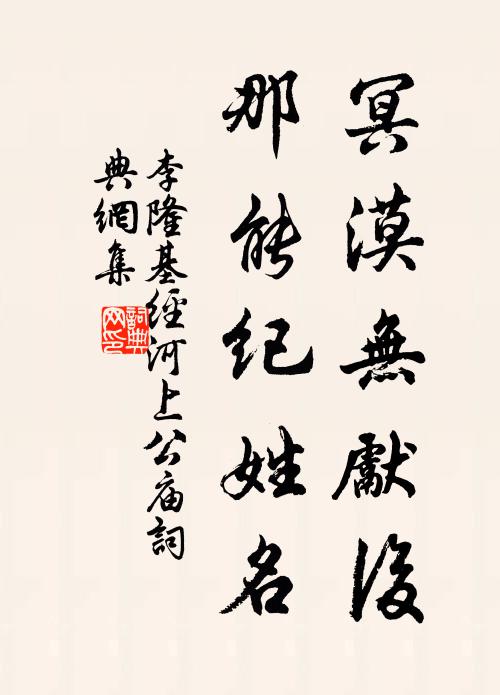 冥漠無獻後
那能纪姓名
李隆基經河上公庙詞
典網集
詞典
网印